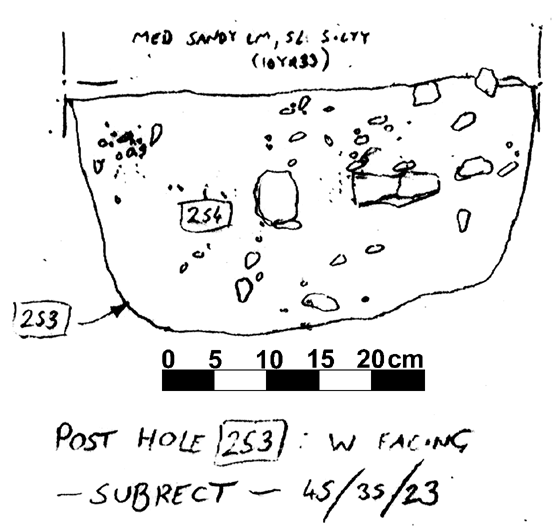 MED SANDY LM, SL. SILTY
(10YR33)
254
253
0 5 10 15 20 cm
POST HOLE 253 : W FACING
- SUBRECT - 45/35/23